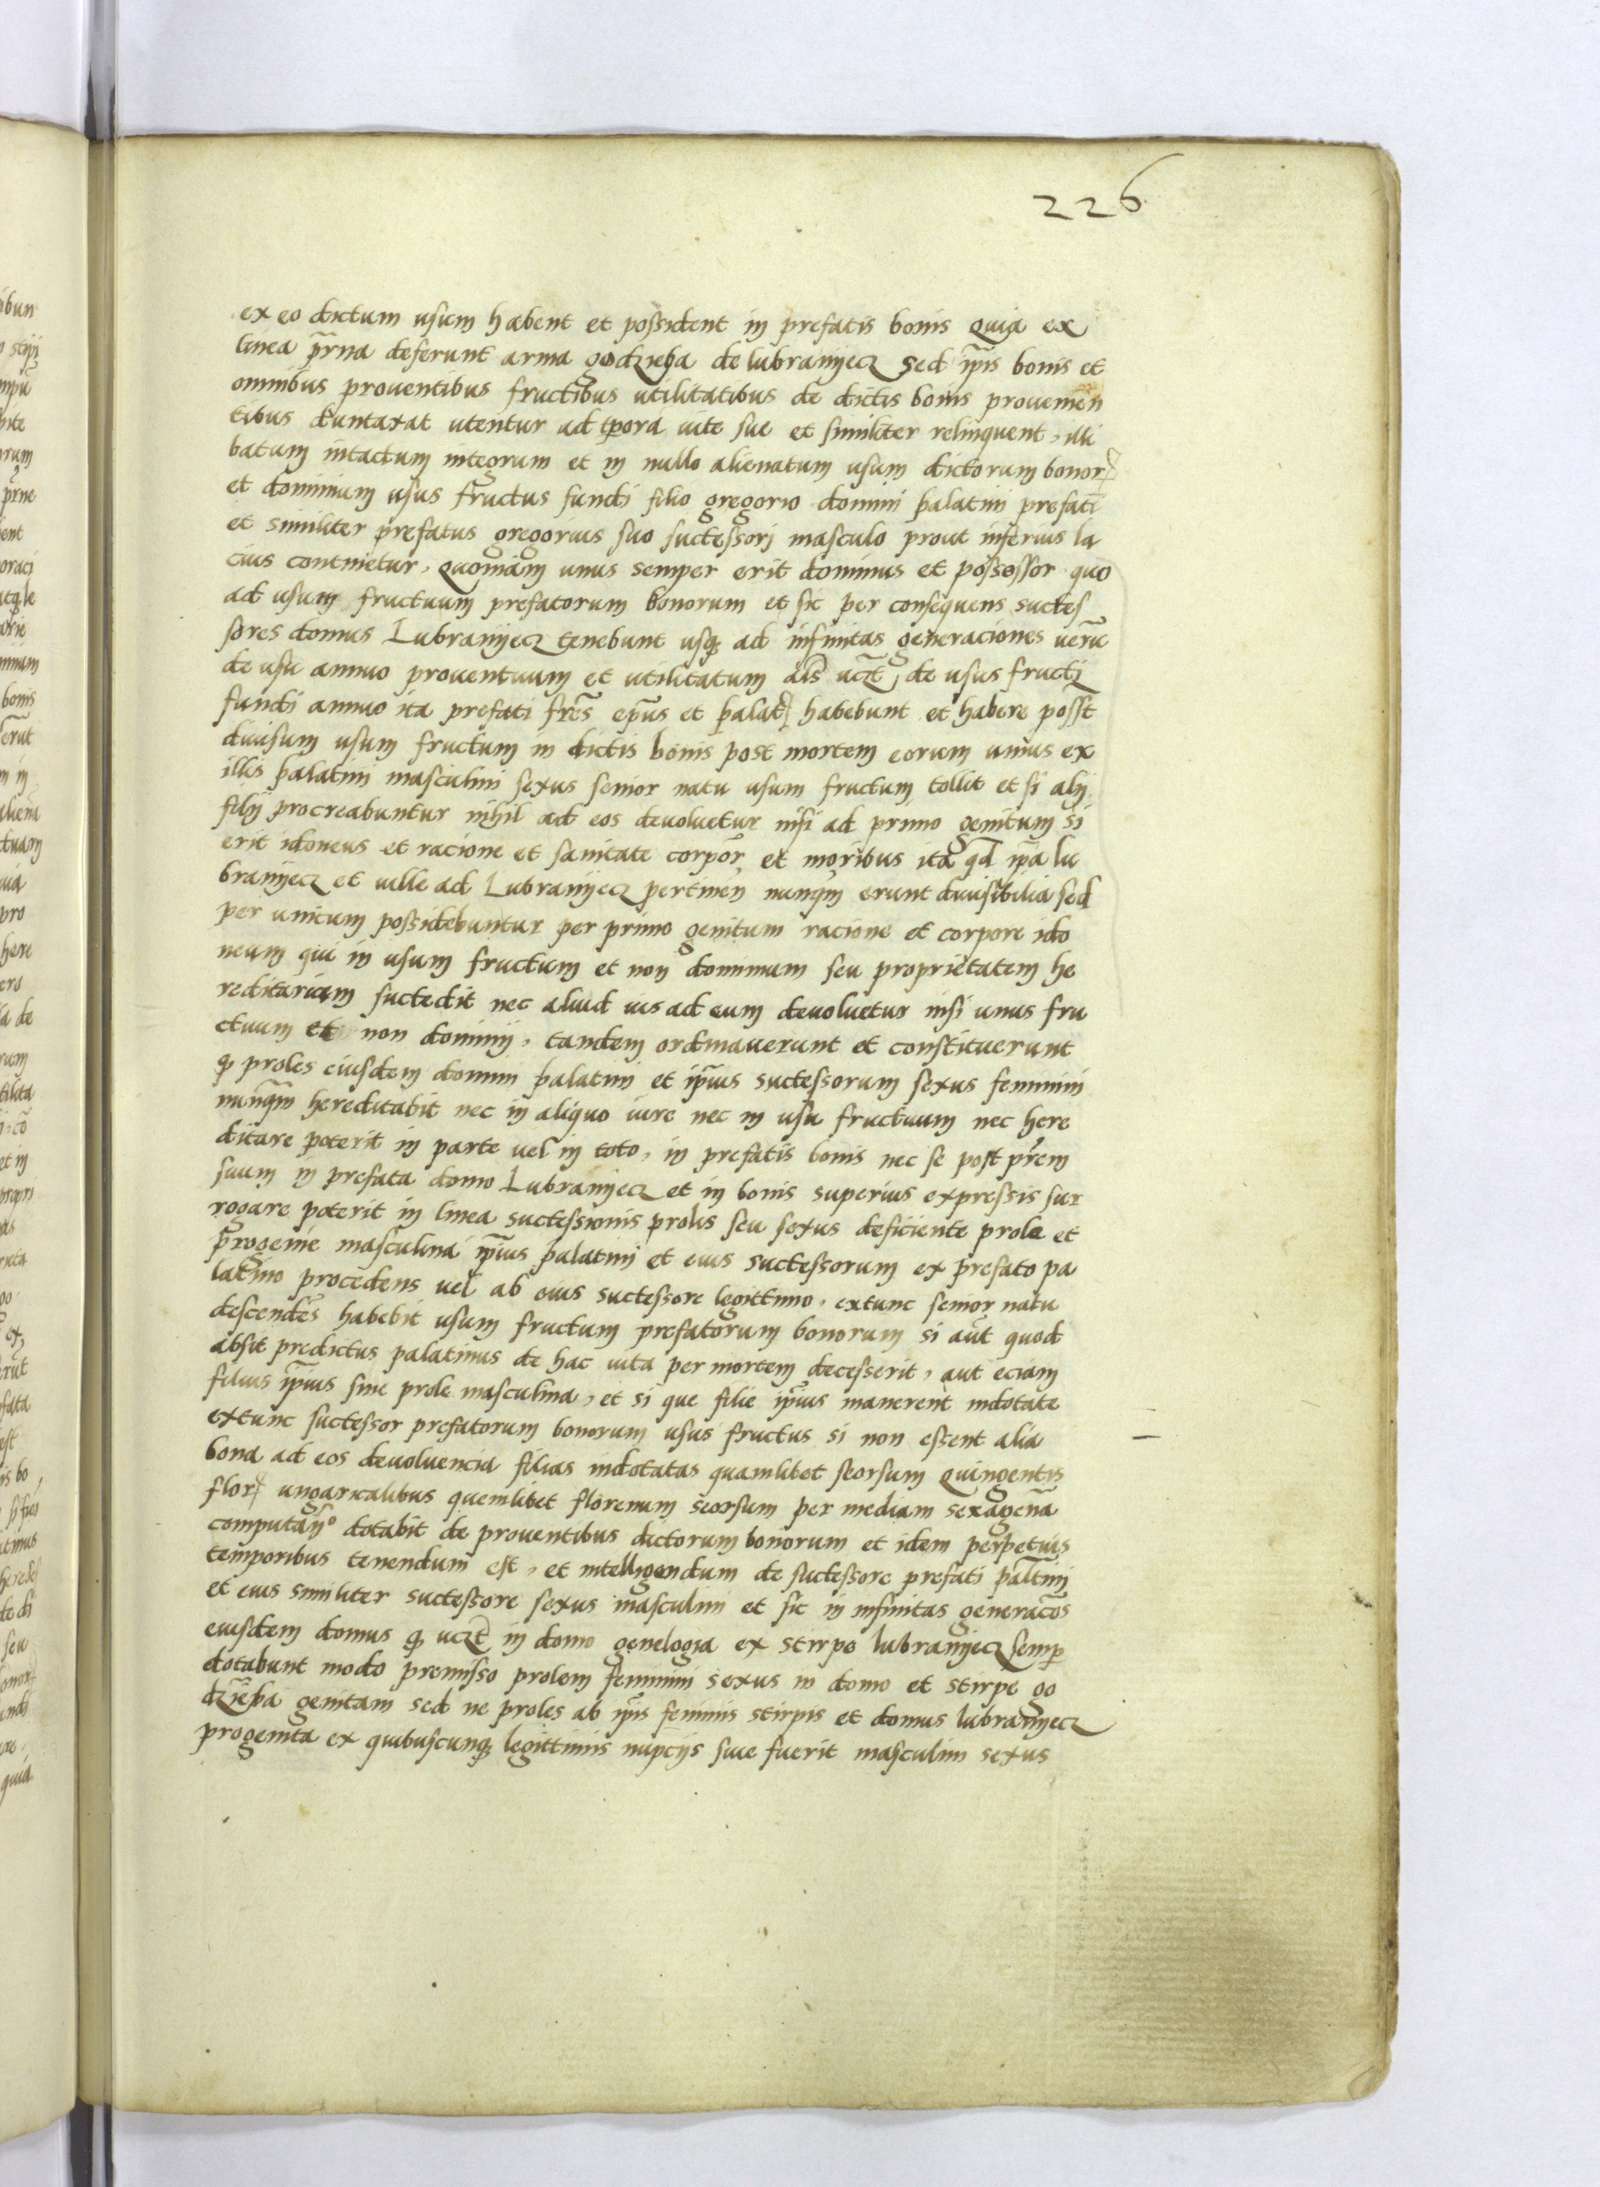 226
ex eo dictum usum habent et possident in prefatis bonis Quia ex
linea p̄rna deferunt arma godzieba de lubranijecz sed ip̄is bonis et
omnibus proventibus fructibus utilitatibus de dictis bonis provenien
tibus duntaxat utentur ad tp̄ora vite sue et similiter relinquent, illi
batum intactum integrum et in nullo alienatum usum dictorum bonorꝝ
et dominium usus fructus fundi filio gregorio domini palatini prefati
et similiter prefatus gregorius suo successori masculo prout inferius la
cius continetur, Quoniam unus semper erit dominus et possessor quo
ad usum fructuum prefatorum bonorum et sic per consequens succes
sores domus Lubranijecz tenebunt usqꝫ ad infinitas generaciones verū
de usu annuo proventuum et utilitatum al̄s vcꝫt de usus fructi
fundi annuo ita prefati fr̄es ep̄us et palatꝫ habebunt et habere poss̄t
divisum usum fructum in dictis bonis post mortem eorum unus ex
illis palatini masculini sexus senior natu usum fructum tollit et si alij
filij procreabuntur nihil ad eos devoluetur nisi ad primo genitum si
erit idoneus et racione et sanitate corpor̄ et moribus ita qd̄ ip̄a lu
branijecz et ville ad Lubranijecz pertinen̄ nunqm̄ erunt divisibilia sed
per unicum possidebuntur per primo genitum racione et corpore ido
neum qui in usum fructum et non dominium seu proprietatem he
reditariam succedit nec aliud ius ad eum devoluetur nisi unus fru
ctuum et non dominij, tandem ordinaverunt et constituerunt
qꝫ proles eiusdem domini palatini et ip̄ius successorum sexus feminini
nunqm̄ hereditabit nec in aliquo iure nec in usu fructuum nec here
ditare poterit in parte vel in toto, in prefatis bonis nec se post pr̄em
suum in prefata domo Lubranijecz et in bonis superius expressis sur
rogare poterit in linea successionis prolis seu sexus deficiente prole et
progenie masculina ip̄ius palatini et eius successorum ex prefato pa
latino procedens vel ab eius successore legittimo, extunc senior natu
descendēs habebit usum fructum prefatorum bonorum si aut̄ quod
absit predictus palatinus de hac vita per mortem decesserit, aut eciam
filius ip̄ius sine prole masculina, et si que filie ip̄ius manerent indotate
extunc successor prefatorum bonorum usus fructus si non essent alia
bona ad eos devoluencia filias indotatas quamlibet seorsum Quingentis
florꝫ ungaricalibus quemlibet florenum seorsum per mediam sexagena̅
computan̄º dotabit de proventibus dictorum bonorum et idem perpetuis
temporibus tenendum est, et intelligendum de successore prefati paltinj
et eius similiter successore sexus masculini et sic in infinitas generac̄oes
eiusdem domus qꝫ vcꝫt in domo genelogia ex stirpe lubranijecz semp̱
dotabunt modo premisso prolem feminini sexus in domo et stirpe go
dzieba genitam sed ne proles ab ip̄is feminis stirpis et domus lubranijecz
progenita ex quibuscunqꝫ legittimis nupcijs sive fuerit masculini sexus